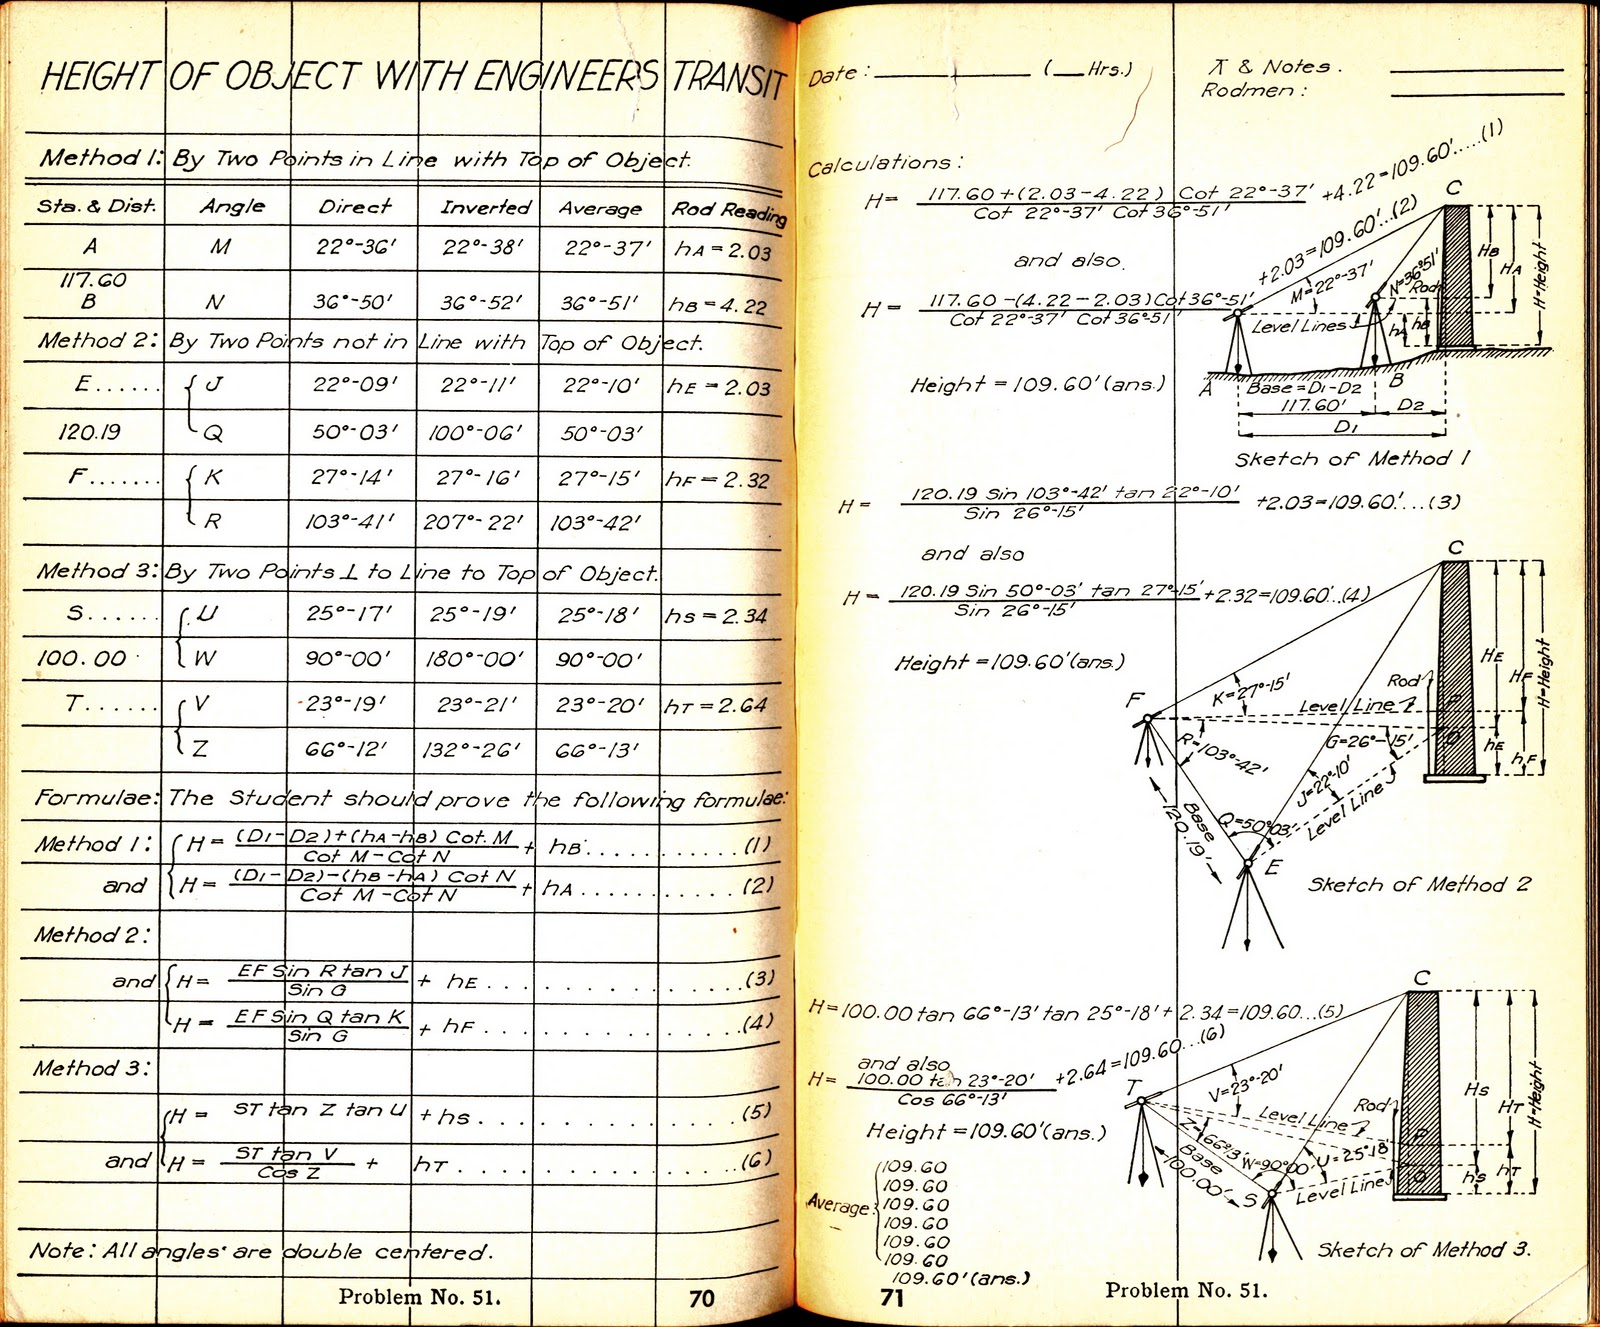 HEIGHT OF OBJECT WITH ENGINEERS TRANSIT
Method 1: By Two Points in Line with Top of Object.
Sta. & Dist. Angle Direct Inverted Average Rod Reading
A M 22°-36' 22°-38' 22°-37' hA=2.03
117.60
B N 36°-50' 36°-52' 36°-51' hB=4.22
Method 2: By Two Points not in Line with Top of Object.
E...... J 22°-09' 22°-11' 22°-10' hE=2.03
120.19 Q 50°-03' 100°-06' 50°-03'
F....... K 27°-14' 27°-16' 27°-15' hF=2.32
R 103°-41' 207°-22' 103°-42'
Method 3: By Two Points ⊥ to Line to Top of Object.
S...... U 25°-17' 25°-19' 25°-18' hs=2.34
100.00 W 90°-00' 180°-00' 90°-00'
T...... V 23°-19' 23°-21' 23°-20' hT=2.64
Z 66°-12' 132°-26' 66°-13'
Formulae: The Student should prove the following formulae:
Method 1: H= (D1-D2)+(hA-hB) Cot. M / Cot M-Cot N + hB...........(1)
and H= (D1-D2)-(hB-hA) Cot N / Cot M-Cot N + hA...........(2)
Method 2:
and H= EF Sin R tan J / Sin G + hE..............(3)
H= EF Sin Q tan K / Sin G + hF..............(4)
Method 3:
H= ST tan Z tan U + hs..............(5)
and H= ST tan V / Cos Z + hT..............(6)
Note: All angles are double centered.
Problem No. 51. 70
Date: (__Hrs.) ⊼ & Notes.
Rodmen:
Calculations:
H= 117.60+(2.03-4.22) Cot 22°-37' / Cot 22°-37' Cot 36°-51' +4.22=109.60'.....(1)
and also
H= 117.60-(4.22-2.03) Cot 36°-51' / Cot 22°-37' Cot 36°-51' +2.03=109.60'...(2)
Height=109.60'(ans.)
C
M=22°-37'
N=36°51'
Rod
HB
HA
H=Height
Level Lines
hA
hB
A
Base=D1-D2
B
117.60'
D2
D1
Sketch of Method 1
H= 120.19 Sin 103°-42' tan 22°-10' / Sin 26°-15' +2.03=109.60'....(3)
and also
H= 120.19 Sin 50°-03' tan 27°-15' / Sin 26°-15' +2.32=109.60'...(4)
Height=109.60'(ans.)
C
F
K=27°-15'
Level Line
Rod
P
O
HE
HF
H=Height
R=103°-42'
G=26°-15'
hE
hF
J=22°-10'
Level Line
Base
120.19'
Q=50°03'
E
Sketch of Method 2
H=100.00 tan 66°-13' tan 25°-18'+2.34=109.60...(5)
and also
H= 100.00 tan 23°-20' / Cos 66°-13' +2.64=109.60...(6)
Height=109.60'(ans.)
C
T
V=23°-20'
Level Line
Rod
P
O
Hs
HT
H=Height
Z=66°13'
Base
100.00'
W=90°00'
U=25°18'
S
Level Line
hs
hT
Sketch of Method 3.
Average:
109.60
109.60
109.60
109.60
109.60
109.60
109.60'(ans.)
71 Problem No. 51.